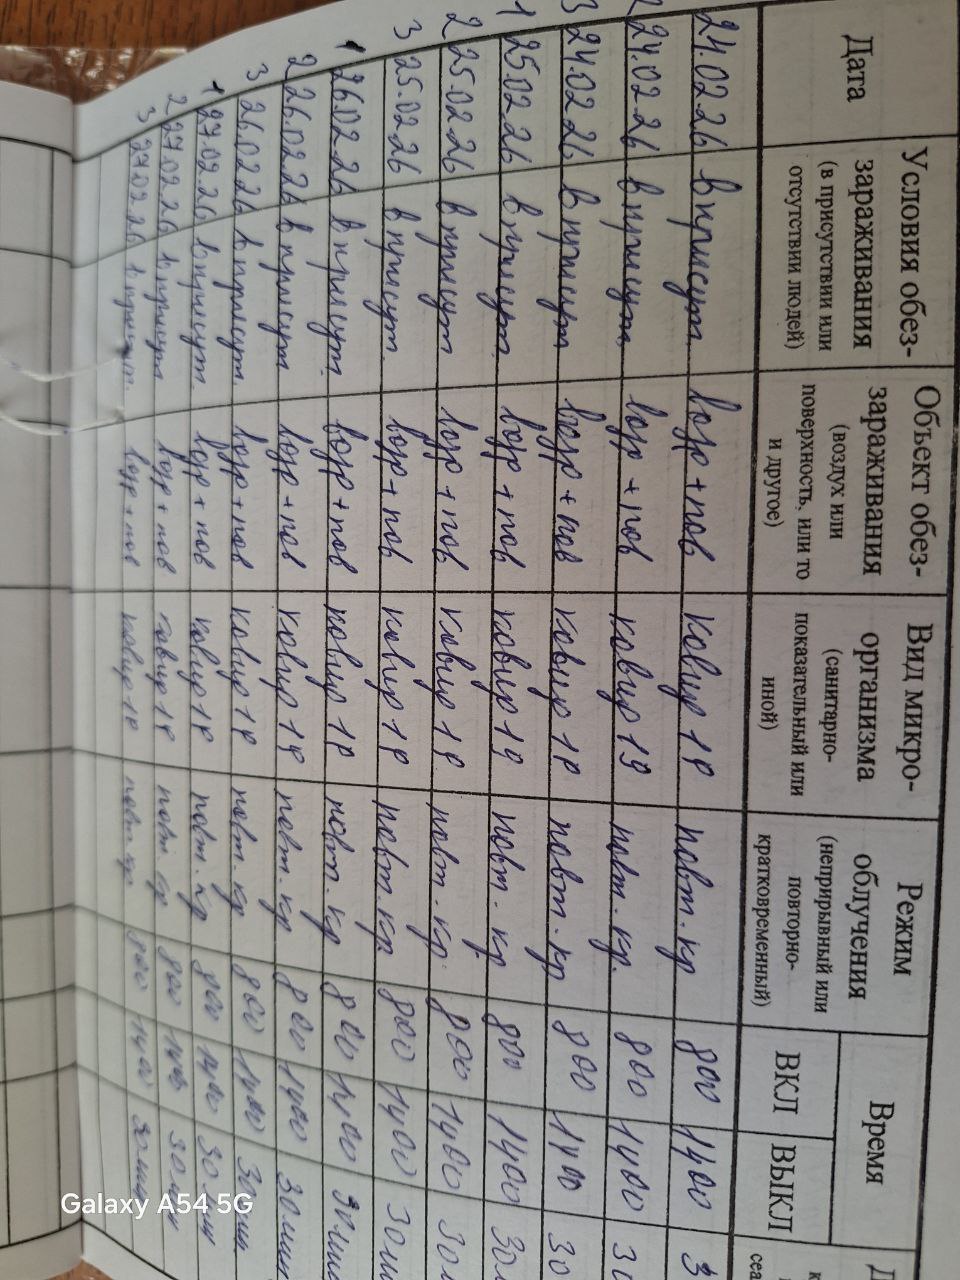 Дата
Условия обез-
зараживания
(в присутствии или
отсутствии людей)
Объект обез-
зараживания
(воздух или
поверхность, или то
и другое)
Вид микро-
организма
(санитарно-
показательный или
иной)
Режим
облучения
(неприрывный или
повторно-
кратковременный)
Время
ВКЛ
ВЫКЛ
24.02.26 в присут возд + пов ковид 19 повт. кр 800 1400 3
2 24.02.26 в присут возд + пов ковид 19 повт. кр. 800 1400 30
3 24.02.26 в присут возд + пов ковид 19 повт. кр 800 1400 30
1 25.02.26 в присут. возд + пов ковид 19 повт. кр 800 1400 30
2 25.02.26 в присут возд + пов ковид 19 повт. кр. 800 1400 30
3 25.02.26 в присут. возд + пов ковид 19 повт. кр 800 1400 30
1 26.02.26 в присут. возд + пов ковид 19 повт. кр 800 1400 30 мин
2 26.02.26 в присут возд + пов ковид 19 повт. кр 800 1400 30 мин
3 26.02.26 в присут. возд + пов ковид 19 повт. кр 800 1400 30 мин
1 27.02.26 в присут. возд + пов ковид 19 повт. кр 800 1400 30 мин
2 27.02.26 в присут возд + пов ковид 19 повт. кр 800 1400 30 мин
3 27.02.26 в присут. возд + пов ковид 19 повт. кр 800 1400 30 мин
Galaxy A54 5G